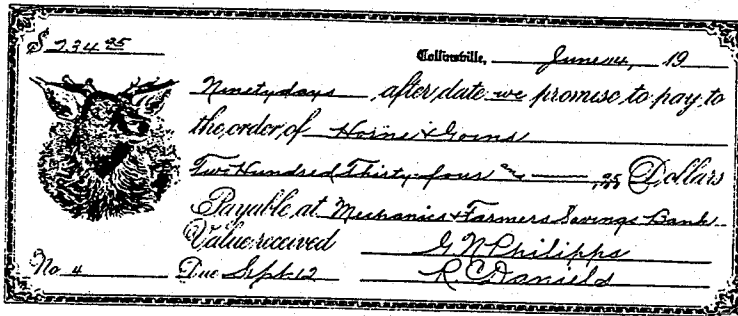 $ 234 25
Collinsville, June 14, 19
Ninety days after date we promise to pay to
the order of Horne & Goins
Two Hundred Thirty-four and 25 Dollars
Payable at Mechanics & Farmers Savings Bank
Value received G N Philipps
No 4 Due Sept 12 R C Daniels